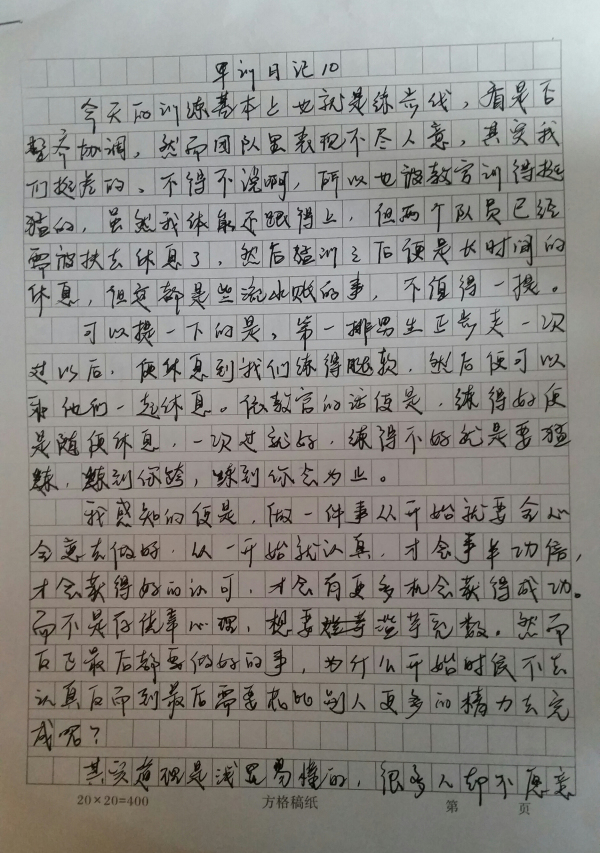 军训日记10
今天的训练基本上也就是练步伐，看是否
整齐协调，然而团队虽表现不尽人意，其实我
们挺差的，不得不说啊，所以也被教官训得挺
猛的，虽然我体能还跟得上，但两个队员已经
要被扶去休息了，然后猛训之后便是长时间的
休息，但这都是些流水账的事，不值得一提。
可以提一下的是，第一排男生正步走一次
过以后，便休息到我们练得腿软，然后便可以
和他们一起休息。依教官的话便是，练得好便
是随便休息，一次过就好，练得不好就是要猛
练，练到你垮，练到你会为止。
我感知的便是，做一件事从开始就要全心
全意去做好，从一开始就认真，才会事半功倍，
才会获得好的认可，才会有更多机会获得成功。
而不是存侥幸心理，想要滥竽充数。然而
反正最后都要做好的事，为什么开始时候不去
认真反而到最后需要花比别人更多的精力去完
成呢？
其实道理是浅显易懂的，很多人却不愿意
20×20=400 方格稿纸 第 页